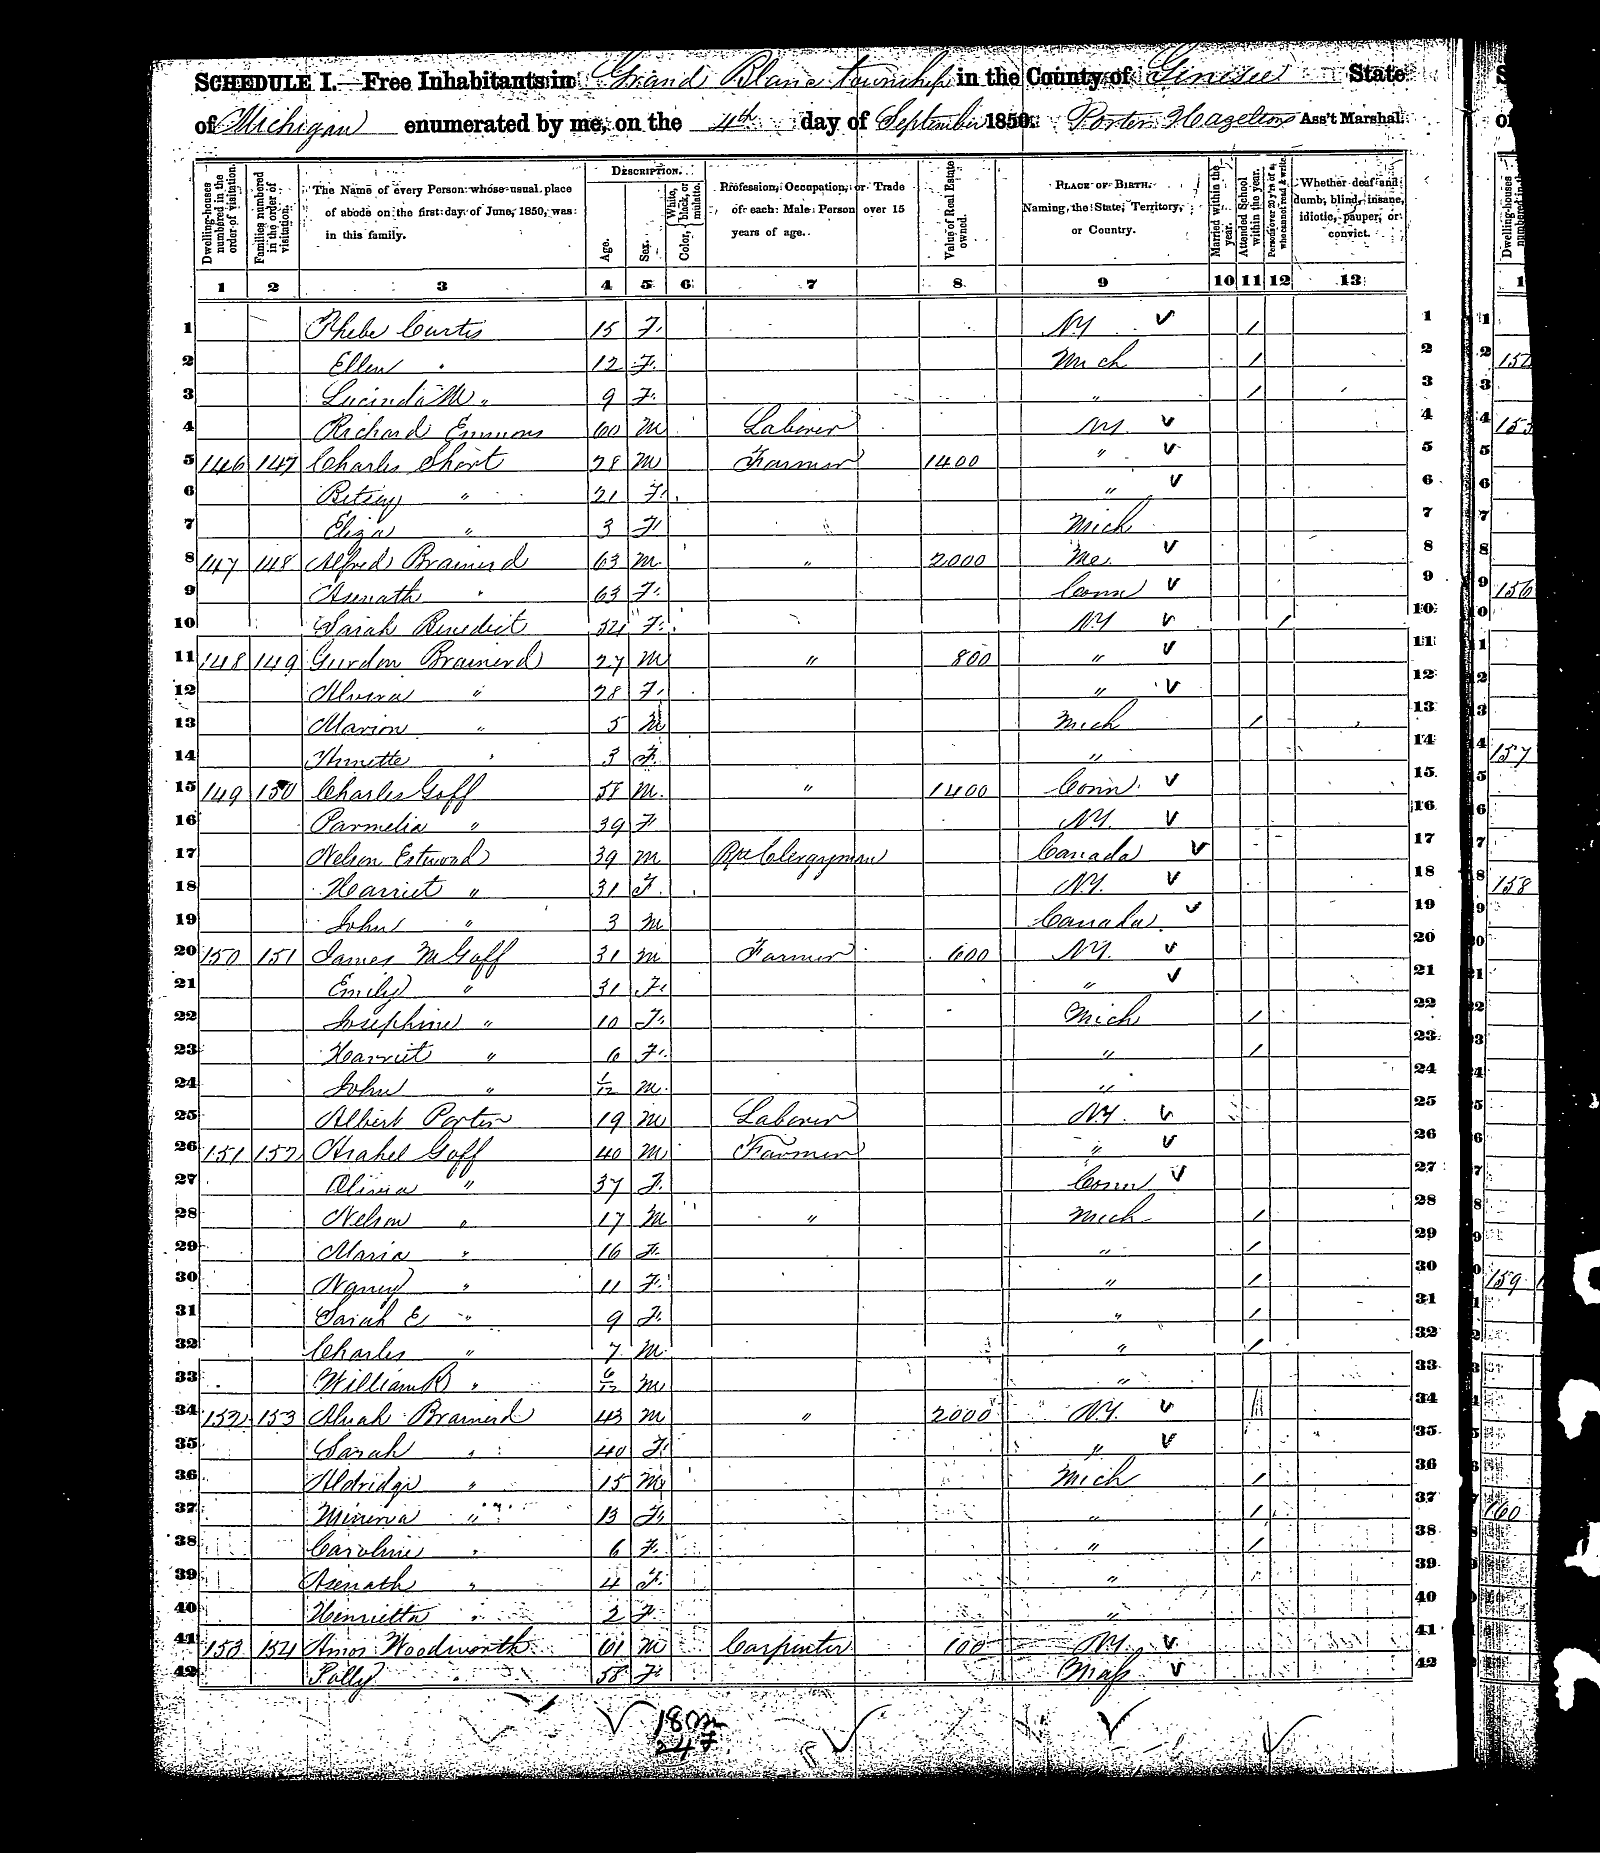 SCHEDULE I.—Free Inhabitants in Grand Blanc township in the County of Ginisee State
of Michigan enumerated by me, on the 4th day of September 1850. Porter Hazelton Ass't Marshal.
Dwelling-houses numbered in the order of visitation.
Families numbered in the order of visitation.
The Name of every Person whose usual place of abode on the first day of June, 1850, was in this family.
DESCRIPTION.
Age.
Sex.
Color, White, black, or mulatto.
Profession, Occupation, or Trade of each Male Person over 15 years of age.
Value of Real Estate owned.
PLACE OF BIRTH. Naming the State, Territory, or Country.
Married within the year.
Attended School within the year.
Persons over 20 y'rs of age who cannot read & write.
Whether deaf and dumb, blind, insane, idiotic, pauper, or convict.
1 2 3 4 5 6 7 8 9 10 11 12 13
1 Phebe Curtis 15 F. NY V / 1
2 Ellen " 12 F. Mich / 2
3 Lucinda M " 9 F. " / 3
4 Richard Emmons 60 M Laborer NY V 4
5 146 147 Charles Short 28 M Farmer 1400 " V 5
6 Betsey " 21 F. " V 6
7 Eliza " 3 F Mich 7
8 147 148 Alfred Brainerd 63 M " 2000 Me. V 8
9 Asenath " 63 F. Conn V 9
10 Sarah Benedict 54 F. NY V / 10
11 148 149 Gurdon Brainerd 27 M " 800 " V 11
12 Alvira " 28 F. " V 12
13 Marion " 5 M Mich / 13
14 Annette " 3 F. " 14
15 149 150 Charles Goff 58 M. " 1400 Conn. V 15
16 Parmelia " 39 F NY. V 16
17 Nelson Estwood 39 M Bpt Clergyman Canada V 17
18 Harriet " 31 F. NY. V 18
19 John " 3 M Canada V 19
20 150 151 James M Goff 31 M Farmer 600 NY. V 20
21 Emily " 31 F. " V 21
22 Josephine " 10 F. Mich / 22
23 Harriet " 6 F. " / 23
24 John " 1/12 M. " 24
25 Albert Porter 19 M Laborer NY. V 25
26 151 152 Asahel Goff 40 M Farmer " V 26
27 Olivia " 37 F. Conn V 27
28 Nelson " 17 M " Mich / 28
29 Maria " 16 F. " / 29
30 Nancy " 11 F. " / 30
31 Sarah E " 9 F. " / 31
32 Charles " 7 M. " / 32
33 William R " 6/12 M " 33
34 152 153 Alvah Brainerd 43 M " 2000 NY. V 34
35 Sarah " 40 F. " V 35
36 Aldridge " 15 M Mich / 36
37 Minerva " 13 F. " / 37
38 Caroline " 6 F. " / 38
39 Asenath " 4 F. " 39
40 Henrietta " 2 F. " 40
41 153 154 Amos Woodworth 61 M Carpenter 100 NY. V 41
42 Polly " 58 F. Mass V 42
18 m
24 F
152
153
156
157
158
159
160